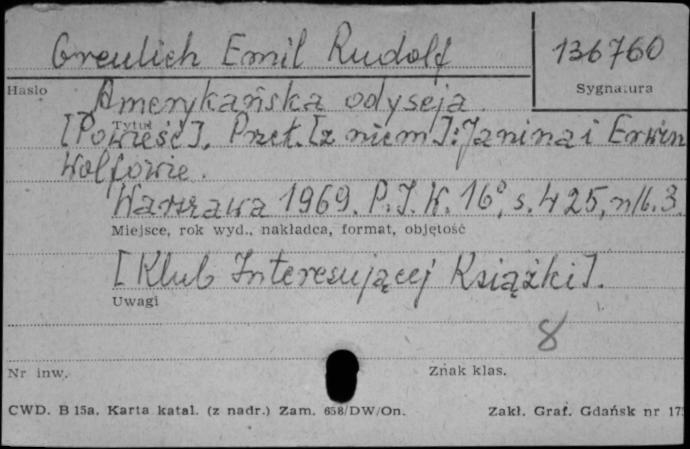 Greulich Emil Rudolf
136760
Hasło
Sygnatura
Amerykańska odyseja.
Tytuł
[Powieść]. Przeł. [z niem]: Janina i Erwin
Wolfowie.
Warszawa 1969. P.I.W. 16°, s. 425, nlb. 3.
Miejsce, rok wyd., nakładca, format, objętość
[Klub Interesującej Książki].
Uwagi
8
Nr inw.
Znak klas.
CWD. B 15a. Karta katal. (z nadr.) Zam. 658/DW/On.
Zakł. Graf. Gdańsk nr